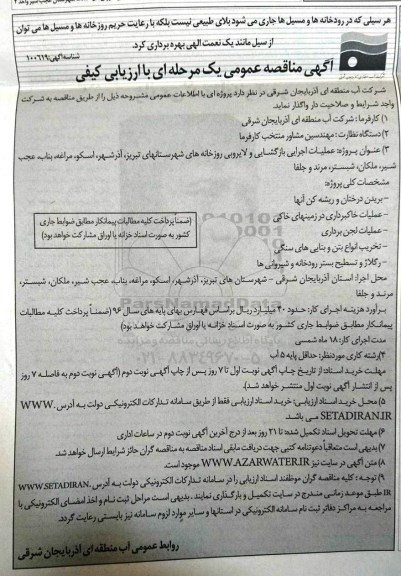 هر سیلی که در رودخانه ها و مسیل ها جاری می شود بلای طبیعی نیست بلکه با رعایت حریم روزخانه ها و مسیل ها می توان
از سیل مانند یک نعمت الهی بهره برداری کرد.
شناسه آگهی: ۱۰۰۶۱۹
آگهی مناقصه عمومی یک مرحله ای با ارزیابی کیفی
شرکت آب منطقه ای آذربایجان شرقی در نظر دارد پروژه ای با اطلاعات عمومی مشروحه ذیل را از طریق مناقصه به شرکت
واجد شرایط و صلاحیت دار واگذار نماید.
۱) کارفرما: شرکت آب منطقه ای آذربایجان شرقی
۲) دستگاه نظارت: مهندسین مشاور منتخب کارفرما
۳) عنوان پروژه: عملیات اجرایی بازگشایی و لایروبی روزخانه های شهرستانهای تبریز، آذرشهر، اسکو، مراغه، بناب، عجب
شیر، ملکان، شبستر، مرند و جلفا
مشخصات کلی پروژه:
- بریدن درختان و ریشه کن آنها
- عملیات خاکبرداری در زمینهای خاکی
- عملیات لجن برداری
- تخریب انواع بتن و بنایی های سنگی
- رگلاژ و تسطیح بستر رودخانه و شیروانی ها
(ضمناً پرداخت کلیه مطالبات پیمانکار مطابق ضوابط جاری
کشور به صورت اسناد خزانه یا اوراق مشارکت خواهد بود)
محل اجرا: استان آذربایجان شرقی - شهرستان های تبریز، آذرشهر، اسکو، مراغه، بناب، عجب شیر، ملکان، شبستر،
مرند و جلفا
برآورد هزینه اجرای کار: حدود ۴۰ میلیارد ریال براساس فهارس بهای پایه های سال ۹۶ (ضمناً پرداخت کلیه مطالبات
پیمانکار مطابق ضوابط جاری کشور به صورت اسناد خزانه یا اوراق مشارکت خواهد بود)
مدت اجرای کار: ۱۸ ماه شمسی
۴) رشته کاری موردنظر: حداقل پایه ۵ آب
مهلت خرید اسناد: از تاریخ چاپ آگهی نوبت اول تا ۷ روز پس از چاپ آگهی نوبت دوم (آگهی نوبت دوم به فاصله ۷ روز
پس از انتشار آگهی نوبت اول منتشر خواهد شد).
۵) محل خرید اسناد ارزیابی: خرید اسناد ارزیابی فقط از طریق سامانه تدارکات الکترونیکی دولت به آدرس WWW.
SETADIRAN.IR می باشد
۶) مهلت تحویل اسناد تکمیل شده: تا ۲۱ روز بعد از درج آخرین آگهی نوبت دوم در ساعات اداری
۷) بدیهی است متعاقباً دعوتنامه کتبی جهت دریافت مابقی اسناد مناقصه به مناقصه گران حائز شرایط ارسال خواهد شد.
۸) متن آگهی در سایت نیز WWW.AZARWATER.IR موجود است.
۹) توجه: کلیه مناقصه گران موظفند اسناد ارزیابی را در سامانه تدارکات الکترونیکی دولت به آدرس WWW.SETADIRAN.
IR طبق موعد زمانی مندرج در سایت تکمیل و بارگذاری نمایند. بدیهی است مراحل ثبت نام و اخذ امضای الکترونیکی با
مراجعه به مراکز دفاتر ثبت نام سامانه الکترونیکی در استانها و سایر موارد لزوم سامانه نیز بایستی رعایت گردد.
روابط عمومی آب منطقه ای آذربایجان شرقی